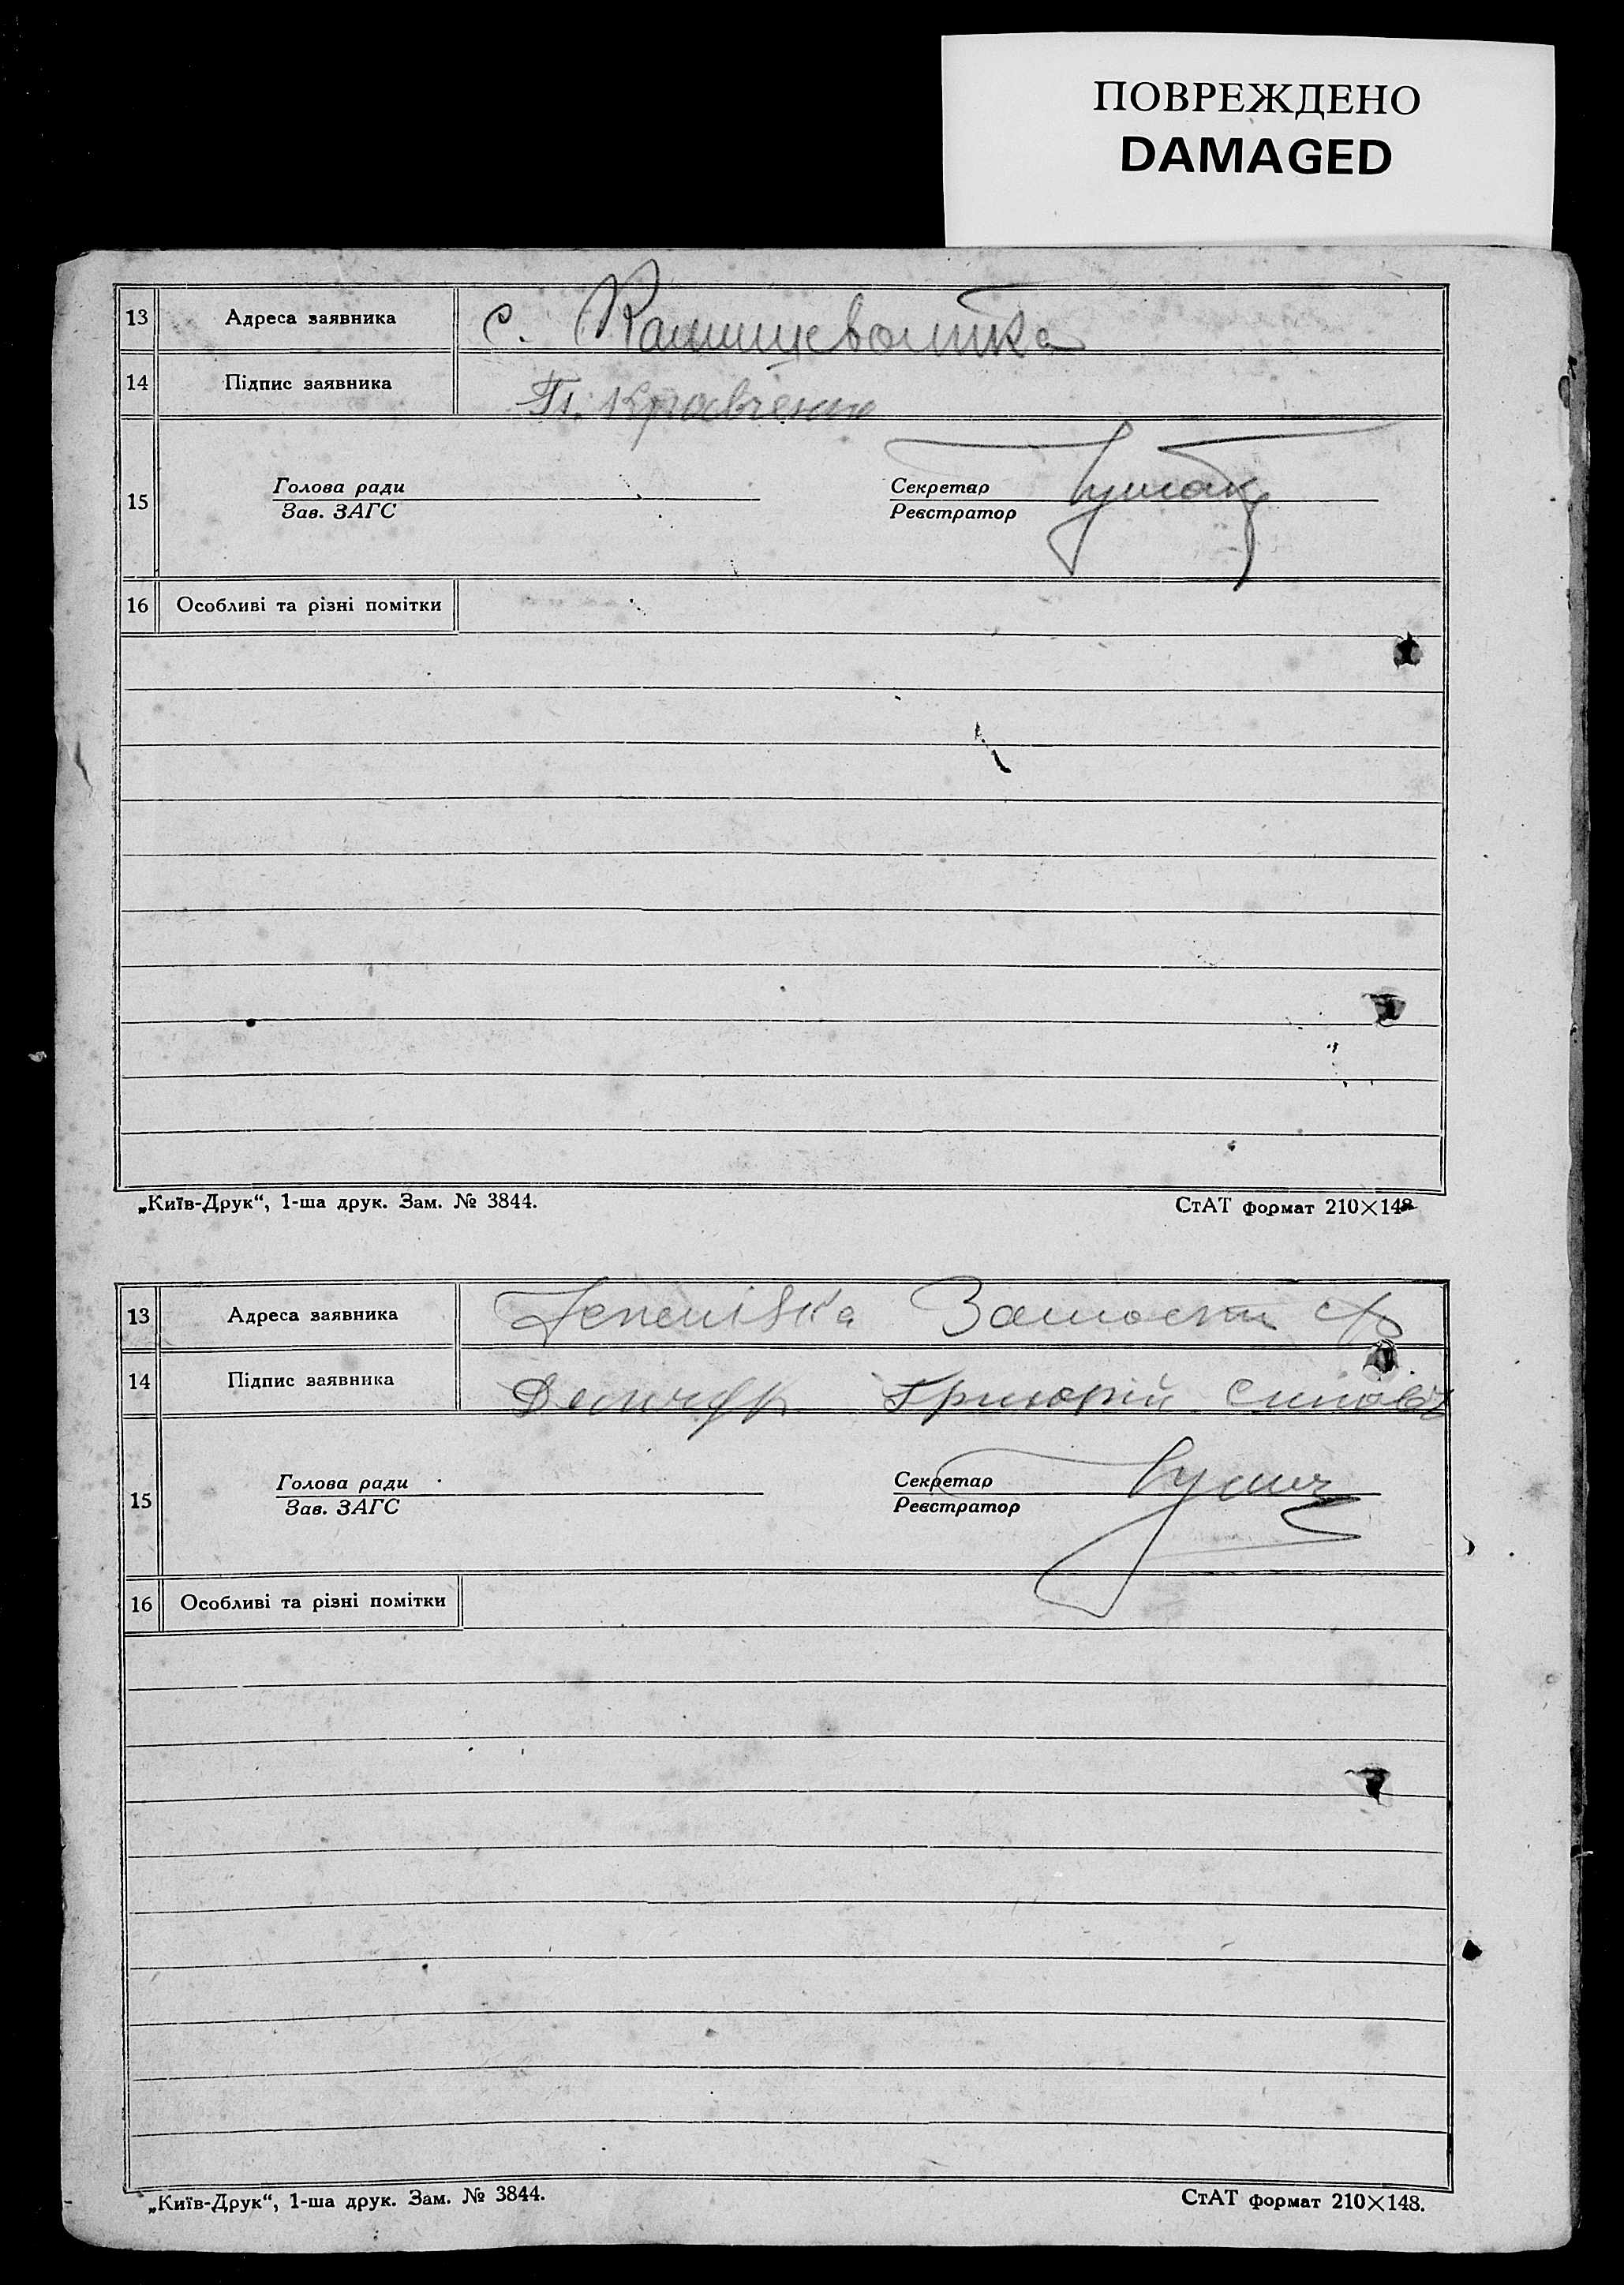 ПОВРЕЖДЕНО
DAMAGED
13 Адреса заявника с.
14 Підпис заявника П. Кравченко
15 Голова ради Секретар
Зав. ЗАГС Реєстратор
16 Особливі та різні помітки
„Київ-Друк“, 1-ша друк. Зам. № 3844. СтАТ формат 210×148
13 Адреса заявника
14 Підпис заявника Григорій
15 Голова ради Секретар
Зав. ЗАГС Реєстратор
16 Особливі та різні помітки
„Київ-Друк“, 1-ша друк. Зам. № 3844. СтАТ формат 210×148.